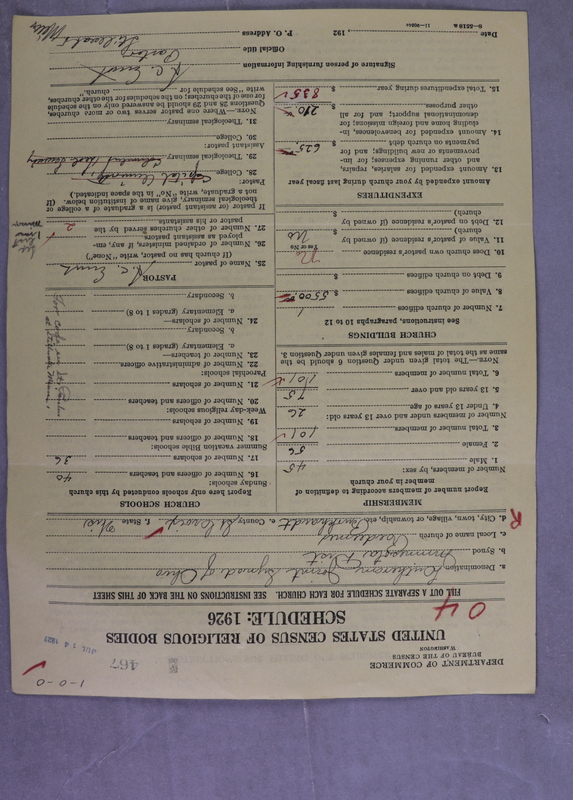 1-0-0
DEPARTMENT OF COMMERCE
BUREAU OF THE CENSUS
WASHINGTON
467
JUL 14 1927
UNITED STATES CENSUS OF RELIGIOUS BODIES
SCHEDULE: 1926
04
FILL OUT A SEPARATE SCHEDULE FOR EACH CHURCH. SEE INSTRUCTIONS ON THE BACK OF THIS SHEET
a. Denomination Lutheran, Joint Synod of Ohio
b. Synod Minnesota Dist
c. Local name of church
R
d. City, town, village, or township, etc. Burkhardt e. County St. Croix f. State Wis.
MEMBERSHIP
Report number of members according to definition of
member in your church
Number of members, by sex:
1. Male 45
2. Female 56
3. Total number of members 101
Number of members under and over 13 years old:
4. Under 13 years of age 26
5. 13 years old and over 75
6. Total number of members 101
NOTE.—The total given under Question 6 should be the
same as the total of males and females given under Question 3.
CHURCH BUILDINGS
See instructions, paragraphs 10 to 12
7. Number of church edifices 1
8. Value of church edifices $ 5500.00
9. Debt on church edifices $
10. Does church own pastor's residence No
Yes or No
11. Value of pastor's residence (if owned by
church) $ No
12. Debt on pastor's residence (if owned by
church) $
EXPENDITURES
Amount expended by your church during last fiscal year
13. Amount expended for salaries, repairs,
and other running expenses; for im-
provements or new buildings; and for
payments on church debt $ 625
14. Amount expended for benevolences, in-
cluding home and foreign missions; for
denominational support; and for all
other purposes $ 210
15. Total expenditures during year $ 835
CHURCH SCHOOLS
Report here only schools conducted by this church
Sunday schools:
16. Number of officers and teachers 40
17. Number of scholars 36
Summer vacation Bible schools:
18. Number of officers and teachers
19. Number of scholars
Week-day religious schools:
20. Number of officers and teachers
21. Number of scholars
Parochial schools:
22. Number of administrative officers
23. Number of teachers—
a. Elementary grades (1 to 8)
b. Secondary
24. Number of scholars—
a. Elementary grades (1 to 8)
b. Secondary
PASTOR
25. Name of pastor A. C. Ernst
(If church has no pastor, write "None")
26. Number of ordained ministers, if any, em-
ployed as assistant pastor
27. Number of other churches served by the
pastor or his assistants 2
If pastor (or assistant pastor) is a graduate of a college or
theological seminary, give name of institution below. (If
not a graduate, write "No", in the space indicated.)
Pastor:
28. College Capital University
29. Theological seminary
Assistant pastor:
30. College
31. Theological seminary
NOTE.—Where one pastor serves two or more churches,
Questions 25 and 29 should be answered only on the schedule
for one of the churches; on the schedules for the other churches,
write "See schedule for church."
Signature of person furnishing information A. C. Ernst
Official title Pastor
Date 192 P. O. Address Stillwater, Minn